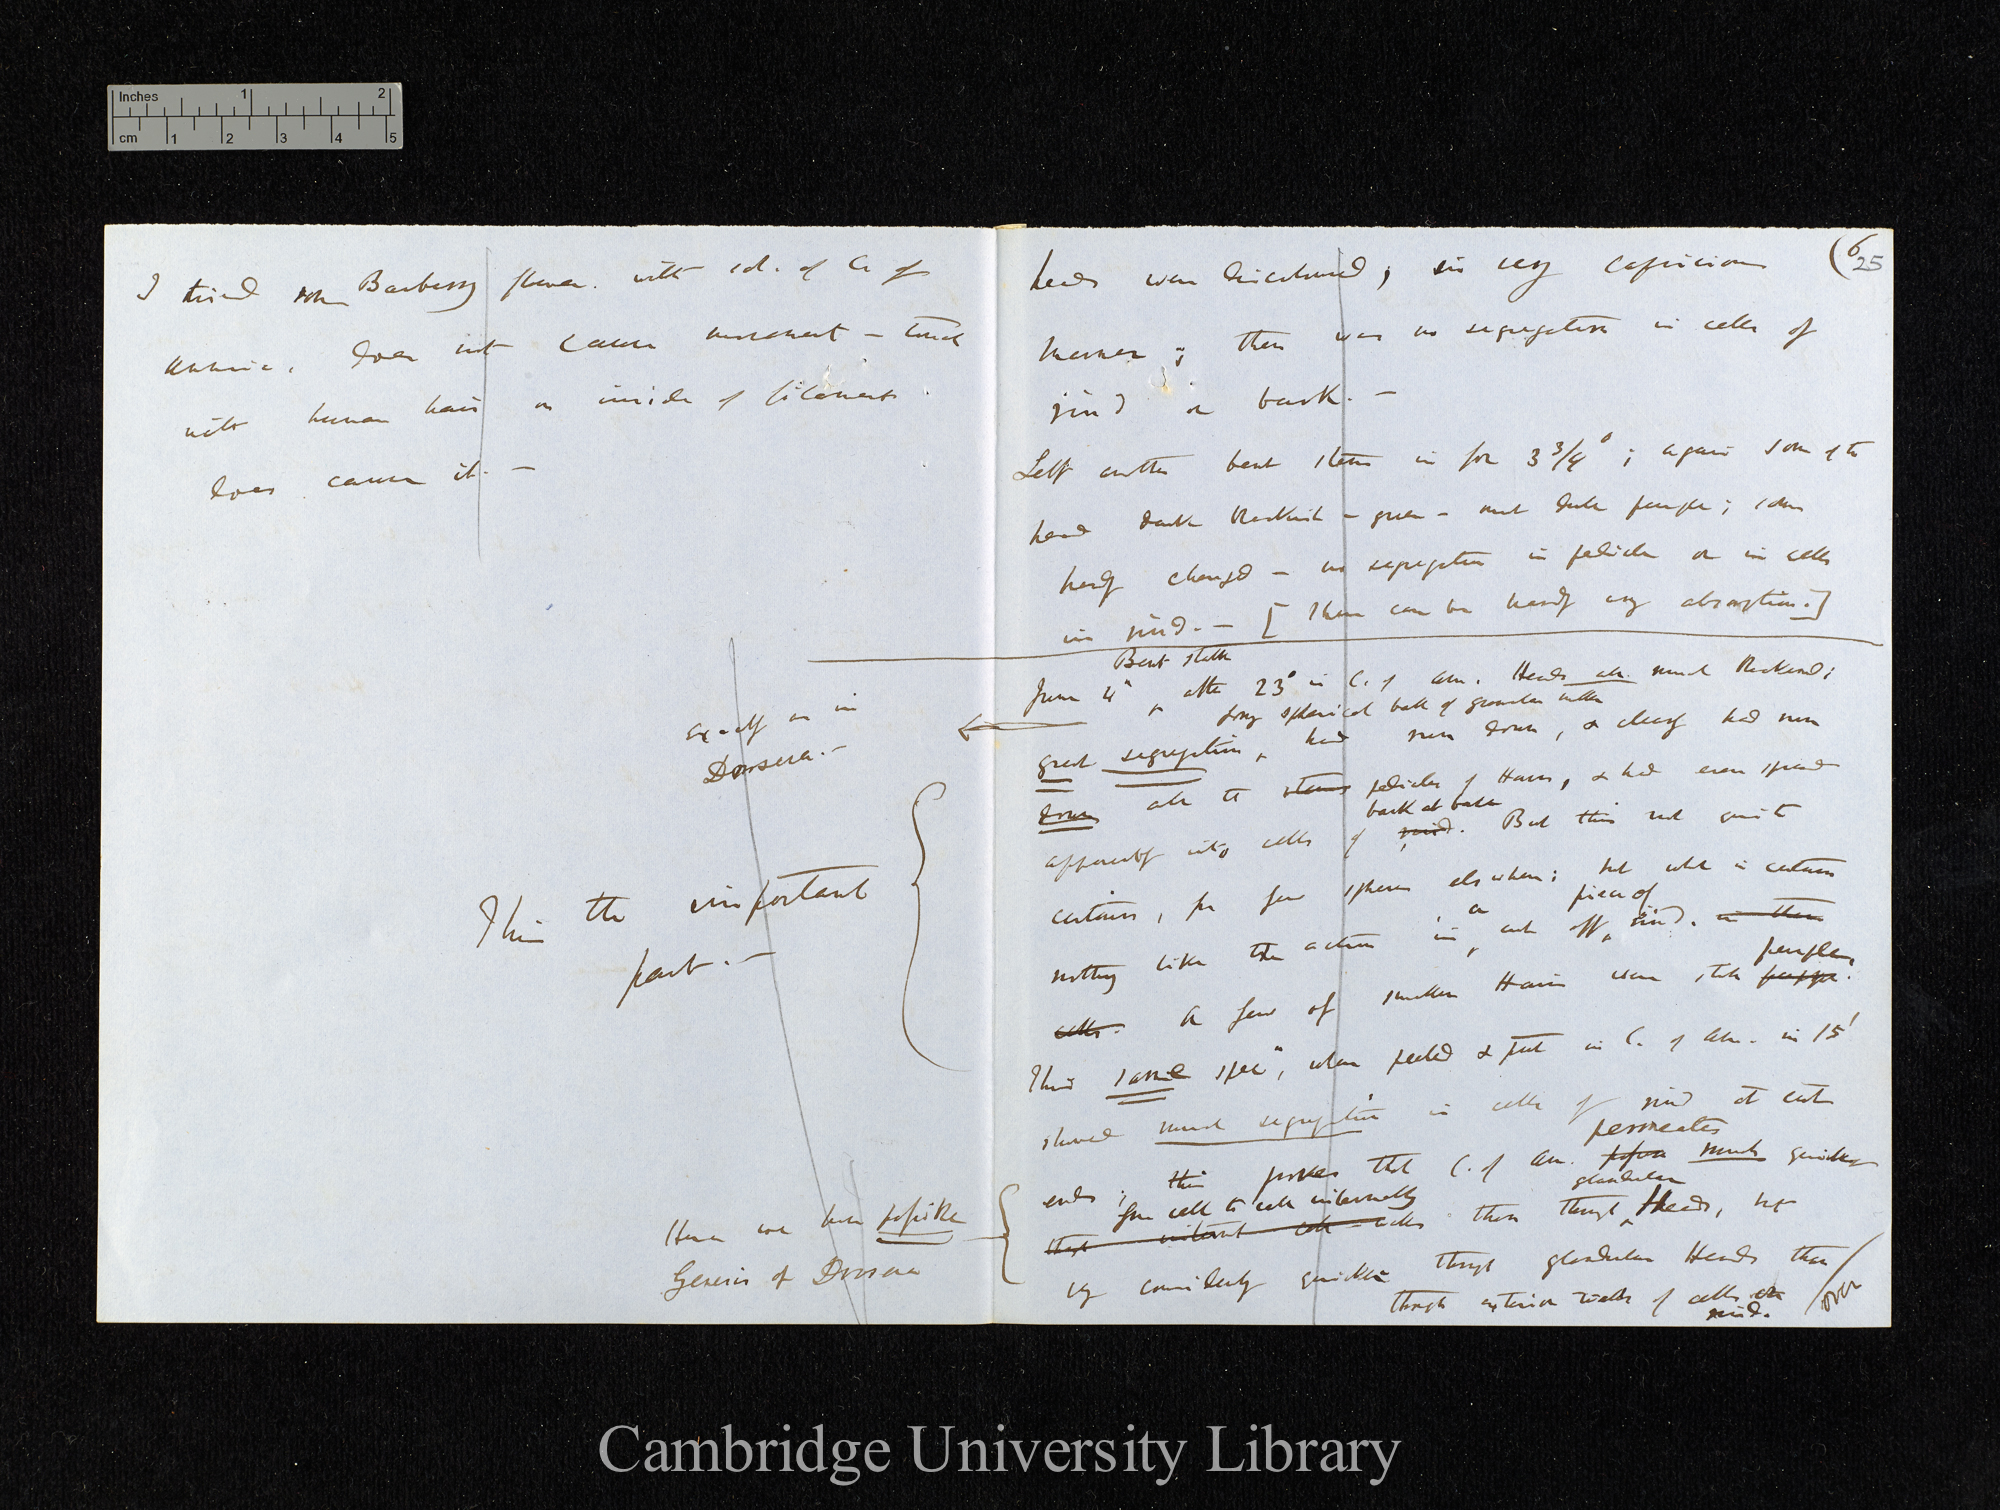 Inches 1 2
cm 1 2 3 4 5
I tried some Barberry flower. with sol. of C. of
ammonia. does not cause movement – touch
with human hair on inside of filaments
does cause it. –
exactly as in
Drosera. –
This the important
part. –
Here we have
Genesis of Drosera
(6
25
heads were discoloured; in very capricious
manner; there was no segregation in cells of
rind or bark. –
Left another bent stem in for 3 3/4°; again some of the
head dark blackish-green – not dark purple; some
hardly changed – no segregation in pedicels or in cells
in rind. – [ There can be hardly any absorption.]
Bent stalk
June 4" after 23° in C. of am. Heads all much blackened;
long spherical balls of granular matter
great segregation, had run down, & clearly had run
down all the stems pedicels of Hairs, & had even spread
bark at base
apparently into cells of rind. But this not quite
certain, for few spheres elsewhere; but what is certain
a piece of
nothing like the action in cut off rind. in these
purple
cells. A few of smaller Hairs were still
This same specⁿ, when peeled & put in C. of Am. in 15'
showed much segregation in cells of rind at cut
permeates
ends; this proves that C. of Am. much quicker
from cell to cell internally glandular
cells than through Heads, but
considerably quicker through glandular Heads than
through exterior walls of cells on
rind.
over
Cambridge University Library